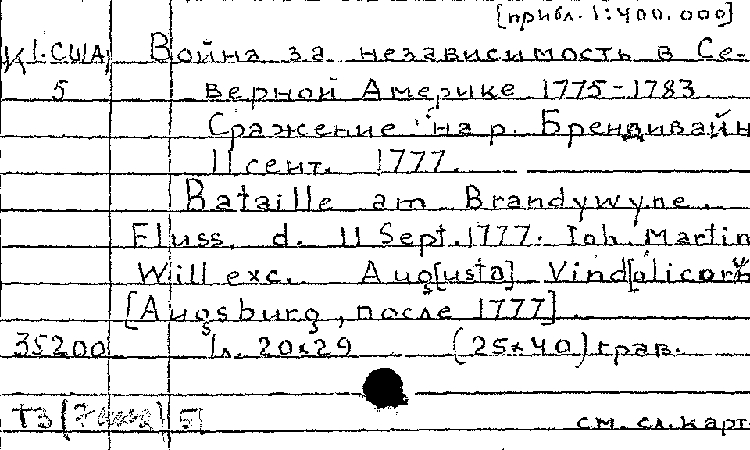 [прибл. 1:400.000]
К 1.США Война за независимость в Се-
5 верной Америке 1775-1783.
Сражение на р. Брендивайн
11 сент. 1777.
Bataille am Brandywyne.
Fluss. d. 11 Sept. 1777. Ioh. Martin
Will exc. Aug[usta] Vind[olicorū
[Augsburg, после 1777].
35200 1л. 20х29 (25х40) грав.
Т3 5
см. сл. карт